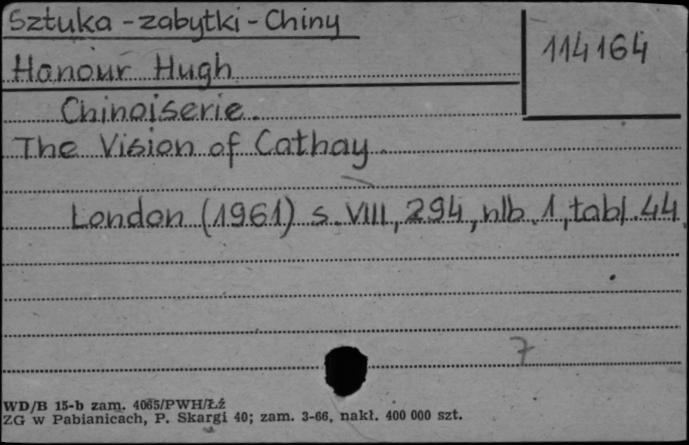 Sztuka - zabytki - Chiny
114164
Honour Hugh
Chinoiserie.
The Vision of Cathay.
London (1961) s. VIII, 294, nlb. 1, tabl. 44.
7
WD/B 15-b zam. 4065/PWH/Łź
ZG w Pabianicach, P. Skargi 40; zam. 3-66, nakł. 400 000 szt.